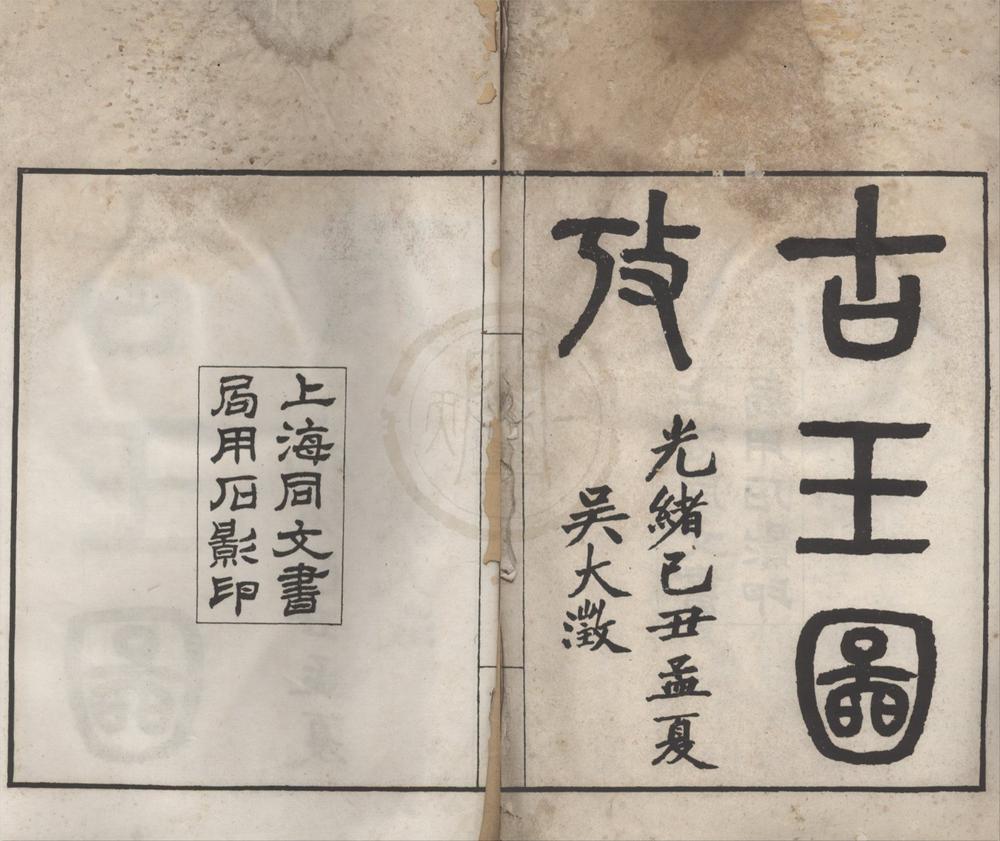 古玉圖
攷
光緒己丑孟夏
吳大澂
上海同文書
局用石影印